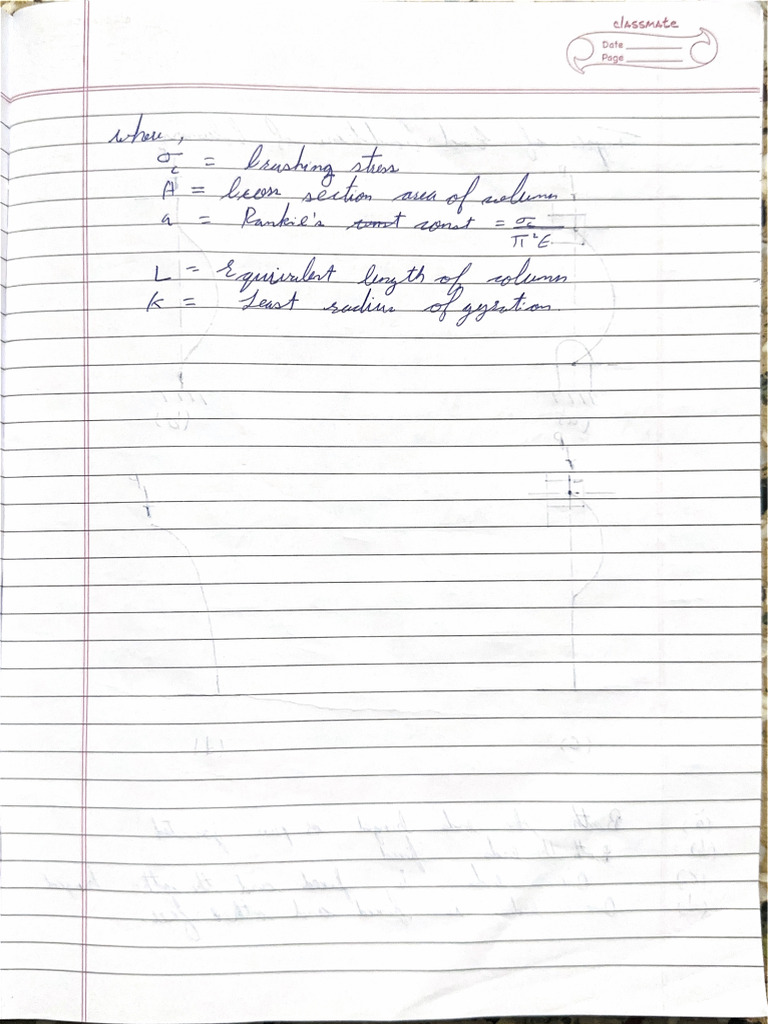 classmate
Date
Page
where,
σc = Crushing stress
A = Cross section area of column
a = Rankie's const const = σc / π²E
L = Equivalent length of column
K = Least radius of gyration.